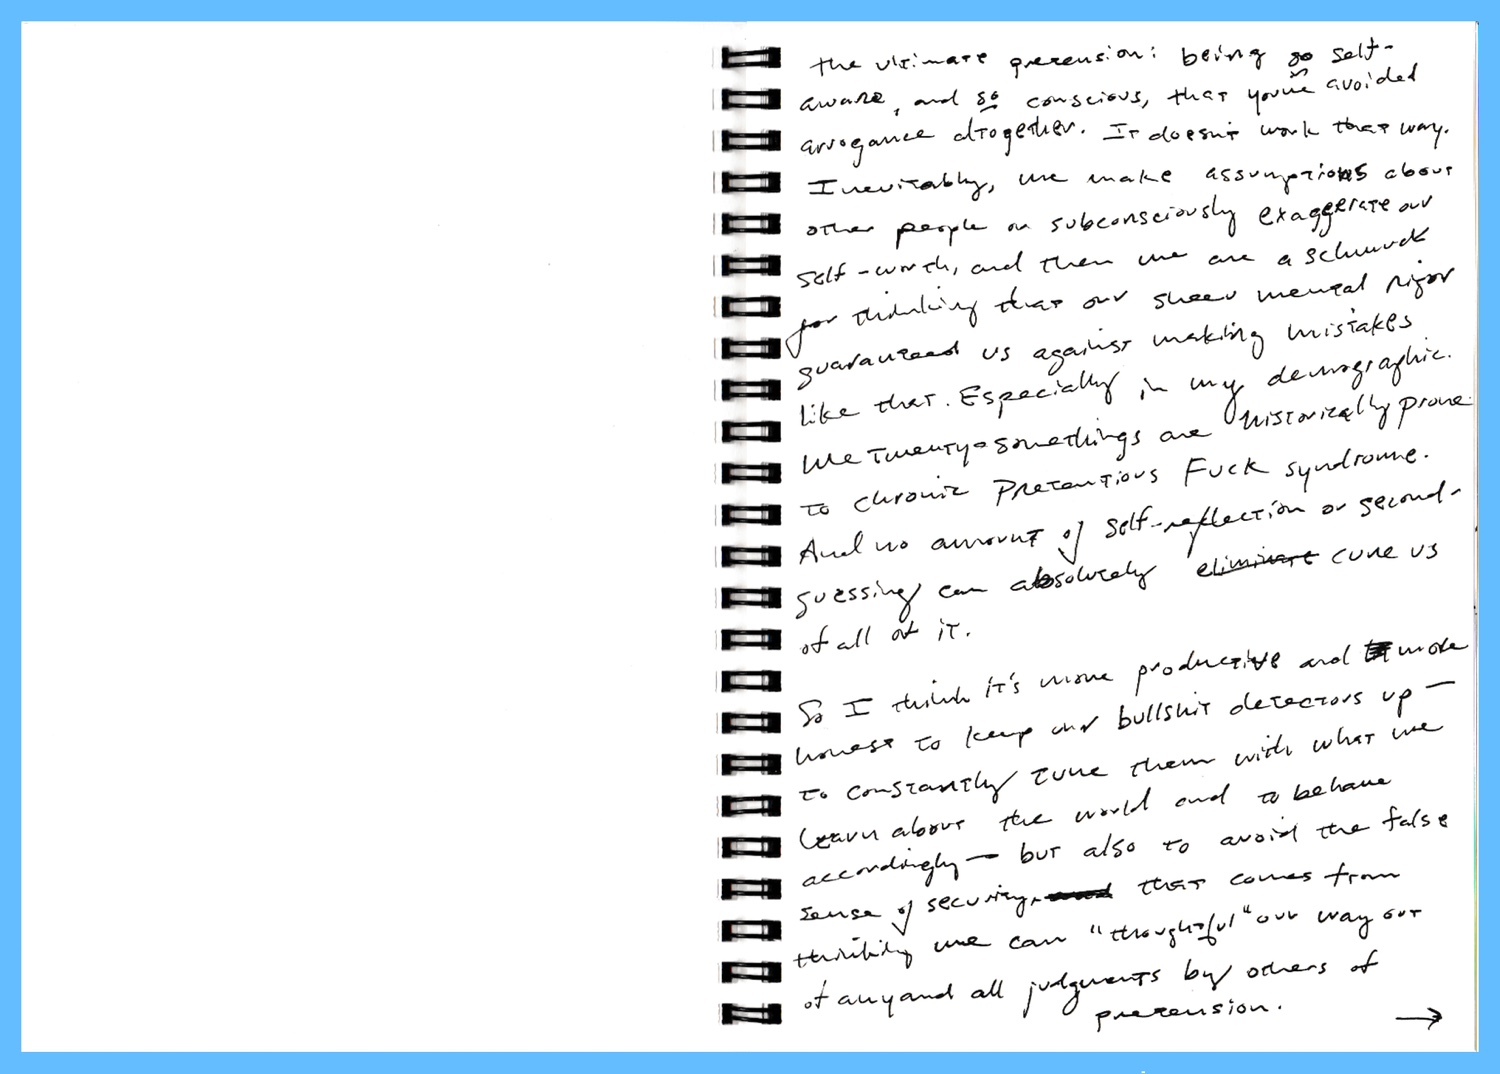 the ultimate pretension: being so self-
aware, and so conscious, that you've avoided
arrogance altogether. It doesn't work that way.
Inevitably, we make assumptions about
other people or subconsciously exaggerate our
self-worth, and then we are a schmuck
for thinking that our sheer mental rigor
guaranteed us against making mistakes
like that. Especially in my demographic.
We twenty-somethings are historically prone
to chronic Pretentious Fuck syndrome.
And no amount of self-reflection or second-
guessing can absolutely eliminate cure us
of all of it.
So I think it's more productive and more
honest to keep our bullshit detectors up—
to constantly tune them with what we
learn about the world and to behave
accordingly— but also to avoid the false
sense of security that comes from
thinking we can "thoughtful" our way out
of any and all judgments by others of
pretension.
→